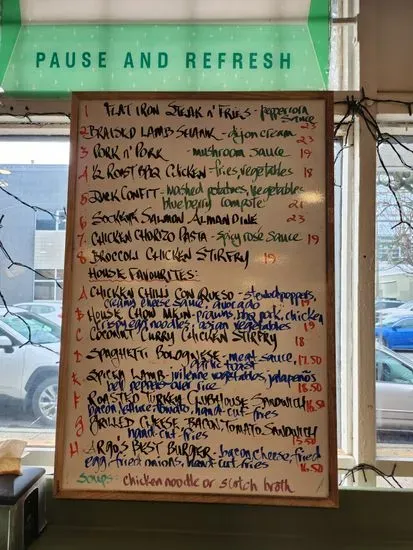 PAUSE AND REFRESH
1 FLAT IRON STEAK N' FRIES - peppercorn
sauce 23
2 BRAISED LAMB SHANK - dijon cream 23
3 PORK N' PORK - mushroom sauce 19
4 1/2 ROAST BBQ CHICKEN - fries, vegetables 18
5 DUCK CONFIT - mashed potatoes, vegetables
blueberry compote 21
6 SOCKEYE SALMON ALMANDINE 23
7 CHICKEN CHORIZO PASTA - spicy rosé sauce 19
8 BROCCOLI CHICKEN STIRFRY 19
HOUSE FAVOURITES:
A CHICKEN CHILI CON QUESO - stewed peppers,
creamy cheese sauce, avocado 19
B HOUSE CHOW MEIN - prawns, bbq pork, chicken
crispy egg noodles, asian vegetables 19
C COCONUT CURRY CHICKEN STIRFRY 18
SPAGHETTI BOLOGNESE - meat sauce,
garlic toast 17.50
SPICY LAMB - julienne vegetables, jalapeños
bell peppers over rice 18.50
F ROASTED TURKEY CLUBHOUSE SANDWICH
bacon, lettuce, tomato, hand-cut fries 16.50
G GRILLED CHEESE, BACON, TOMATO SANDWICH
hand-cut fries 15.50
H ARGO'S BEST BURGER - bacon, cheese, fried
egg, fried onions, hand-cut fries 16.50
SOUPS: chicken noodle or scotch broth